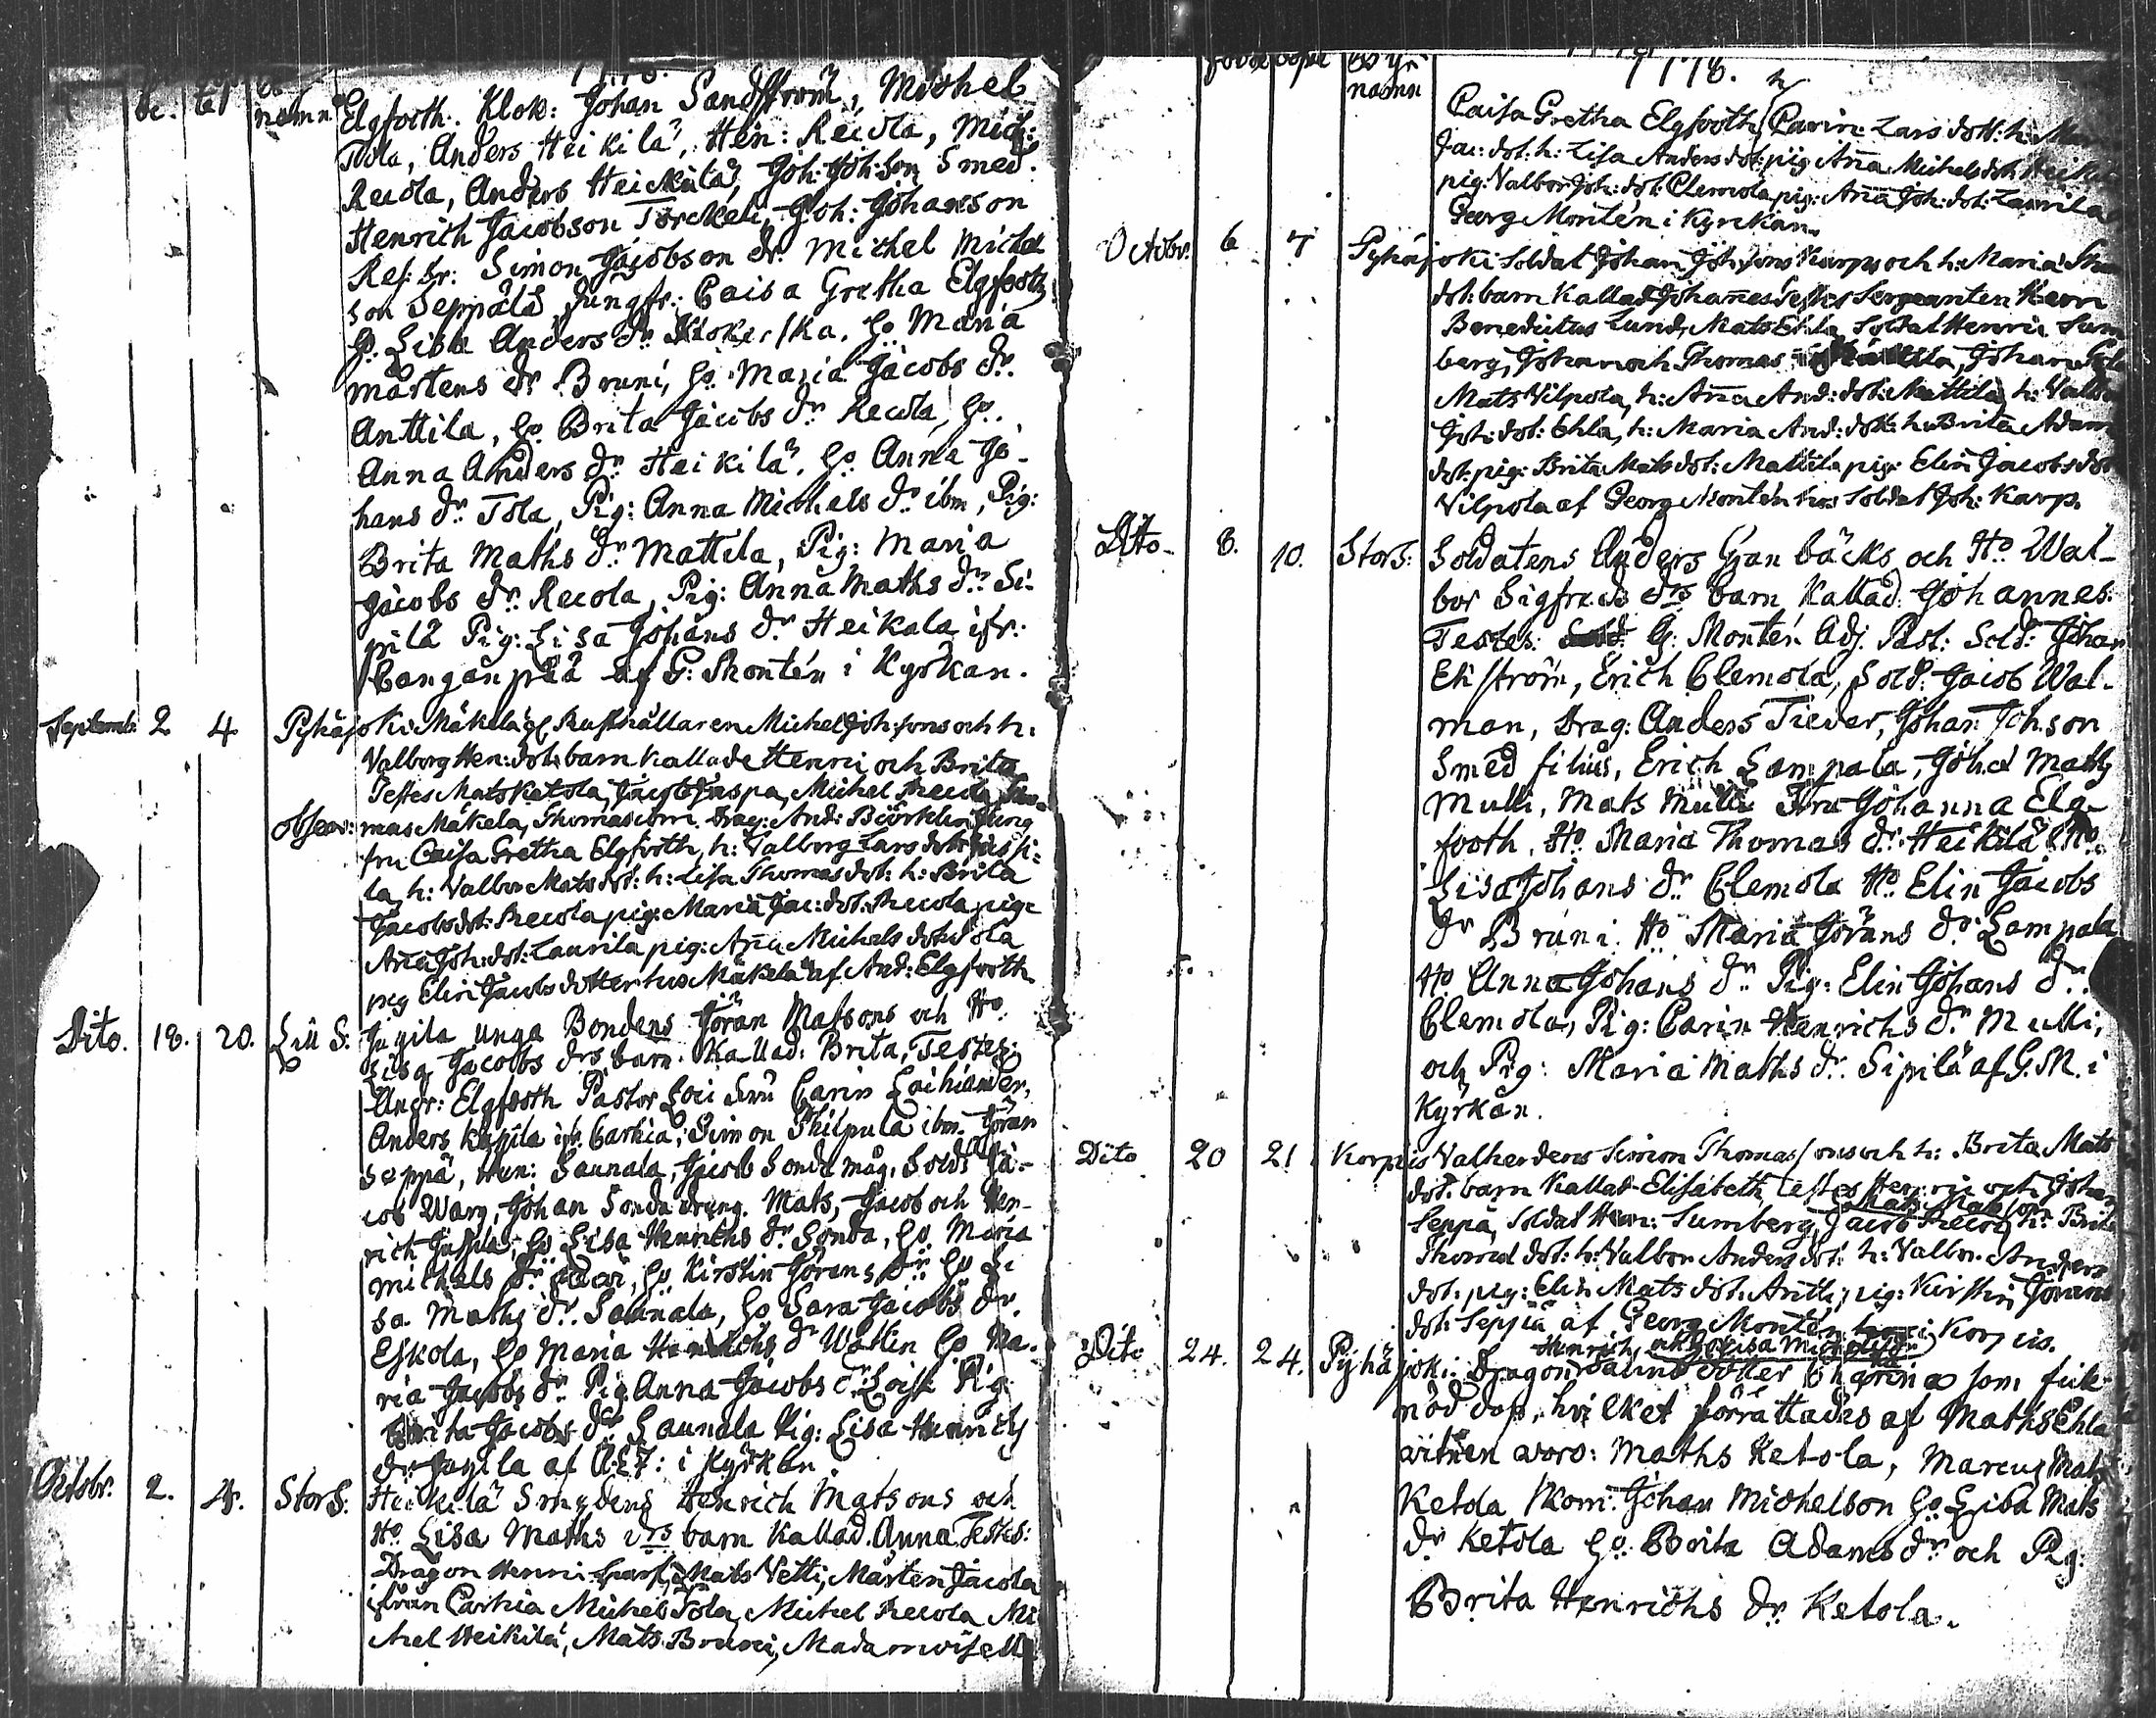 namn
Elgfooth. Klok: Johan Sandström, Michel
Tola, Anders Heikilä, Hen: Recola, Mich:
Recola, Anders Heickilä, Joh: Joh:Son Smed.
Henrich Jacobson Törckeli, Joh: Johanson
Simon Jacobson dr. Michel Michel
son Seppälä, Jungfr: Caisa Gretha Elgfooth
Ho. Lisa Anders dr Klokerska. Ho Maria
mårtens dr Bruni, Ho. Maria Jacobs dr.
Anttila, Ho. Brita Jacobs dr Recola, Ho.
Anna Anders dr Heikilä. Ho Anna Jo-
hans dr Tola, Pig: Anna Michels dr ibm, Pig:
Brita Maths dr Mattila, Pig: Maria
Jacobs dr. Recola, Pig: Anna Maths dr Si-
pilä Pig: Lisa Johans dr Heikala ifr:
Cangånpää af G: Montén i Kyrkan.
Septemb: 2 4 Pyhäjoki Mäkelä Rusthållaren Michel Joh:sons och h:
Valborg Hen: dot: barn kallade Henric och Brita
Testes Mats Ketola, Jacob Juspa, Michel Recola
Observ: mas Mäkela, Thomas ibm. Drag: And: Björklin Jung
fru Caisa Gretha Elgfooth, h: Valborg Lars dot:
la, h: Valbor Mats dot: h: Lisa Thomas dot: h: Brita
Jacobs dot: Recola pig: Maria Jac: dot: Recola pig:
Aña Joh: dot: Laurila pig: Aña Michels dot: Tola
pig Elin Jacobs dotter hus Mäkelä af And: Elgfooth
Dito. 18. 20. Liu S: Jugila unga Bondens Jöran Matsons och Ho
Lisa Jacobs drs barn. Kallad: Brita, Testes:
Andr: Elgfooth Pastor Loci Fru Carin Laihiander,
Anders Kapila ifr. Carkia, Simon Philpula ibm. Jöran
Seppä, Hen: Saunala, Jacob Sonda måg, Sold: Ja-
cob Warg, Johan Sonda dreng. Mats, Jacob och Hen-
rich Juspa, Ho Lisa Henrichs dr Sonda, Ho. Maria
michels dr Ho. Kirstin Jörans dr Ho Li
sa Maths dr. Saunala, Ho Sara Jacobs dr.
Eskola, Ho Maria Henrichs dr Wallin Ho Ma-
ria Jacobs dr Pig Anna Jacobs dr Pig
Brita Jacobs dr Saunala Pig: Lisa Henrichs
dr Jugila af A:E7: i Kyrkan
Octobr. 2. 4. StorS: Heikilä Smedens Henrich Matsons och
Ho Lisa Maths drs barn Kallad. Anna. Testes:
Dragon Henric Mats Vetti, Mårten Jacola
ifrån Carkia Michel Tola, Michel Recola Mi
chel Heikilä, Mats Bruni, Madamoisell
1778.
namn
Caisa Gretha Elgfooth, Carin Lars dott: h:
Jac: dot: h: Lisa Anders dot: pig Aña Michels dot
pig: Valbor Joh: dot: Clemola pig: Aña Joh: dot: Laurila
Georg Montén i Kyrckan.
Octobr: 6 7 Pyhäjoki Soldat Johan Joh:sons Karps och h: Maria
dot: barn Kallad Johañes Testes Sergeanten Herr
Benedictus Lund, Mats Ehla Soldat Henric Sum
berg, Johan och Thomas Johan
Mats Vilpola, h: Aña And: dot: Mattila, h: Valbor
Joh: dot: Ehla, h: Maria And: dot: h: Brita Adam
dot: pig: Brita Mats dot: Mattila pig: Elin Jacobs dot
Vilpola af Georg Montén hos Soldat Joh: Karp.
Dito- 8. 10. StorS: Soldatens Anders Granbäcks och Ho Wal-
bor Sigfreds drs barn Kallad: Johannes.
Testes: G: Montén Adj. Past: Sold: Johan
Ekström, Erich Clemola, Sold: Jacob Wal-
man, Drag: Anders Tieder, Johan Johson
Smed filius, Erich Lampala, Johan Maths
Mulli, Mats Mulli Fru Johanna Elg-
footh, Ho Maria Thomas dr Heikilä Ho.
Lisa Johans dr Clemola Ho Elin Jacobs
dr Bruni. Ho Maria Jörans dr Lampala
Ho Anna Johans dr Pig: Elin Johans dr.
Clemola, Pig: Carin Henrichs dr Mulli,
och Pig: Maria Maths dr. Sipilä af G. M. i
Kyrkan.
Dito 20 21 Korpis Valherdens Simon Thomassons och h: Brita Mats
dot: barn Kallad Elisabeth, Testes Henric och Johan
Mats Matsson
Seppä, Soldat Henr: Sumberg, Jacob Recola h: Brita
Thomas dot: h: Valbor Anders dot: h: Valbor. Anders
dot: pig: Elin Mats dot: Antti, pig: Kirstin Jörans
dot: Seppä af Georg Montén Korpis.
Dito 24. 24. Pyhäjoki: Dragon Henrich Salins och Ho Lisa Michelsdr dotter Catharina som fick
nöd dop, hvilket förrättades af Maths Ehla
witnen woro: Maths Ketola, Marcus Mats
Ketola Johan Michelson Ho Lisa Mats
dr Ketola Ho. Brita Adams dr och Pig:
Brita Henrichs dr. Ketola.